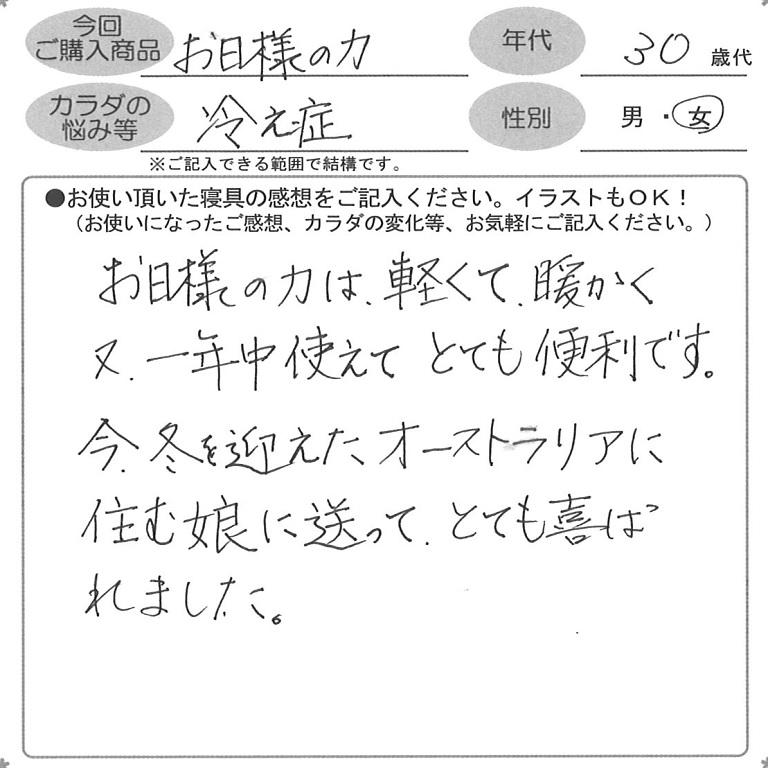 今回
ご購入商品
お日様の力
年代
30 歳代
カラダの
悩み等
冷え症
性別
男・女
※ご記入できる範囲で結構です。
●お使い頂いた寝具の感想をご記入ください。イラストもOK!
(お使いになったご感想、カラダの変化等、お気軽にご記入ください。)
お日様の力は、軽くて、暖かく
又、一年中使えて とても便利です。
今、冬を迎えた、オーストラリアに
住む娘に送って、とても喜ば
れました。